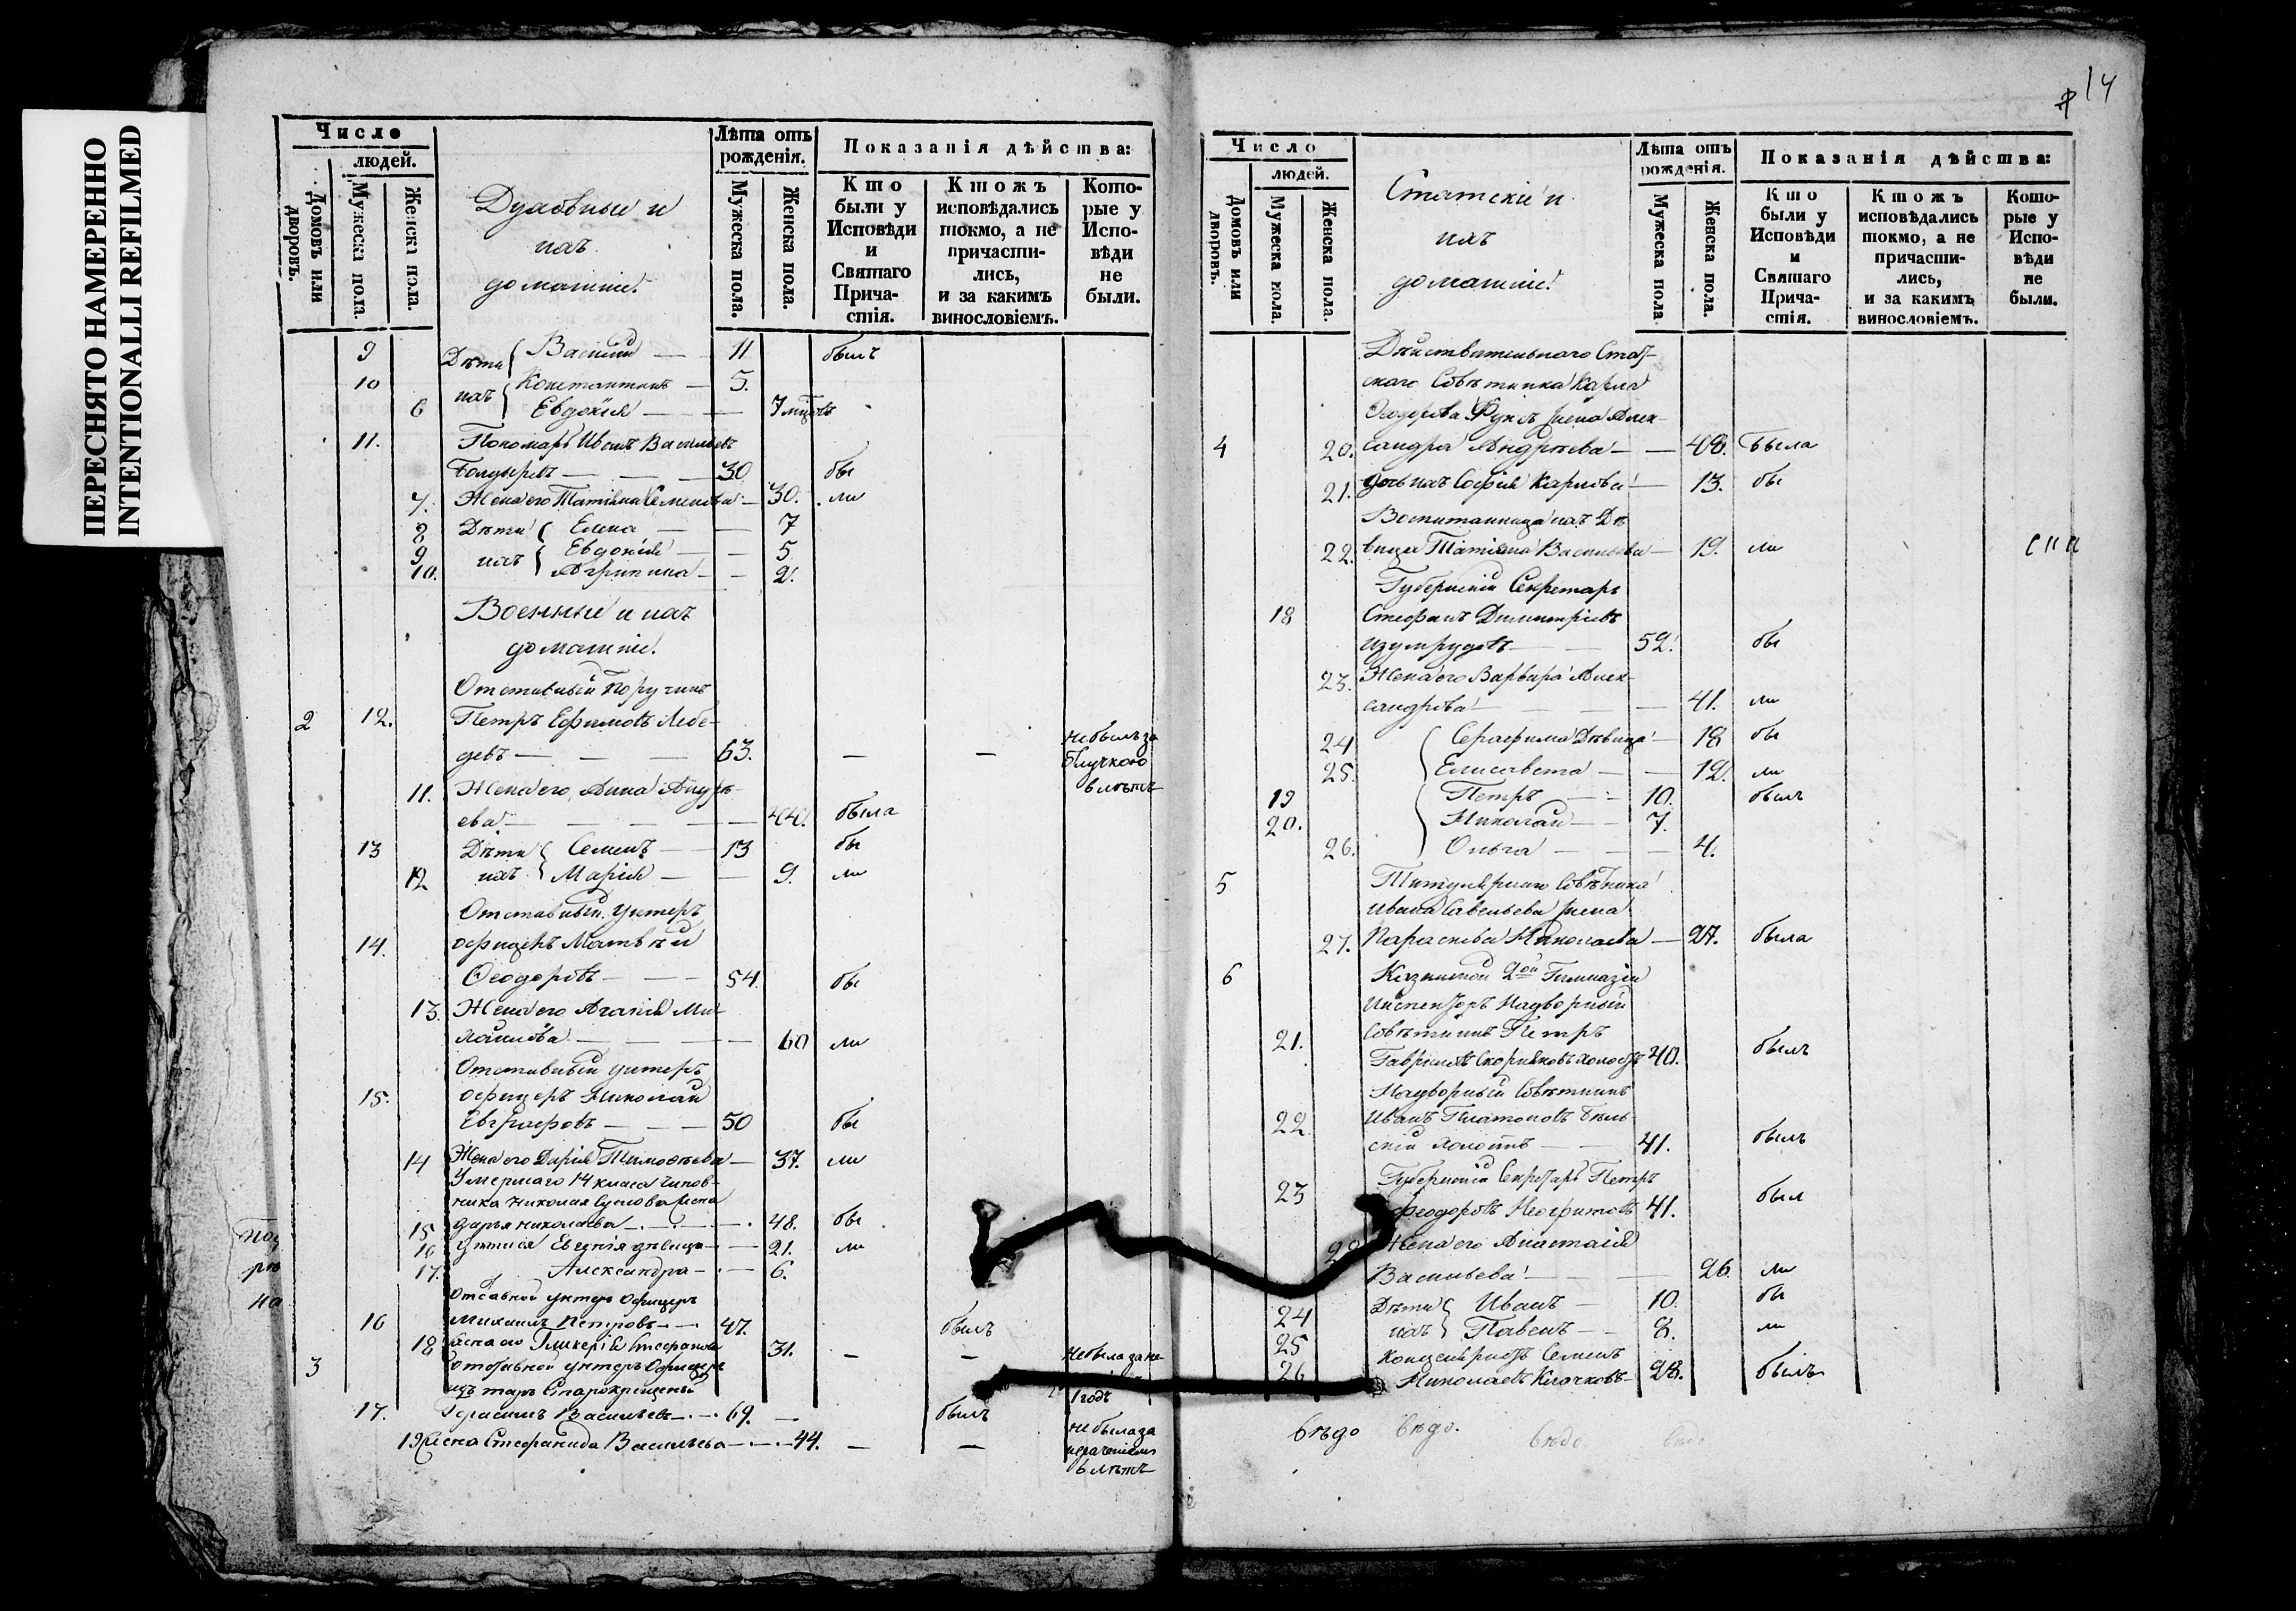 ПЕРЕСНЯТО НАМЕРЕННО
INTENTIONALLI REFILMED
Число
людей.
Домовъ или дворовъ.
Мужеска пола.
Женска пола.
Духовные и
ихъ
домашніе.
Лѣта отъ рожденія.
Мужеска пола.
Женска пола.
Показанія дѣйства:
Кто были у Исповѣди и Святаго Причастія.
Ктожъ исповѣдались токмо, а не причастились, и за какимъ винословіемъ.
Которые у Исповѣди не были.
9 Дѣти Василій — 11 былъ
10 ихъ Константинъ — 5.
6 Евдокія — — 7 мцовъ
11. Пономарь Иванъ Васильевъ
Болдыревъ — — 30 бы
7. Жена его Татіана Семенова — 30. ли
8 Дѣти Елена — — 7
9 ихъ Евдокія — — 5
10. Агрипина — — 2.
Военные и ихъ
домашніе.
Отставный Поручикъ
2 12. Петръ Ефимовъ Лебе-
девъ — — — 63. — — не былъ за
отлучкою
в летѣ
11. Жена его Анна Андре-
ева — — — — 44. была
13 Дѣти Семенъ — 13 бы
12 ихъ Марія — — 9. ли
Отставный Унтеръ
14. офицеръ Матвѣй
Ѳеодоровъ — — 54. бы
13. Жена его Агапія Ми-
хайлова — — — — 60 ли
Отставный унтеръ
15. офицеръ Николай
Евграфовъ — — — 50 бы
14 Жена его Дарія Тимоѳеева — 37. ли
Умершаго 14 класа Чинов-
ника Николая Суслова жена
15 Дарья Николаева — 48. бы
16 Евгенія дѣвица — — 21. ли
17. Александра — — 6.
Отставной унтеръ Офицеръ
16 Михаилъ Петровъ — 47. былъ
18 Жена его Гликерія Стефанова 31. — — не была за
3 Отставной унтеръ Офицеръ
изъ татаръ Старокрещеный
1 годъ
17. Герасимъ Васильевъ — 69. — былъ
19 Жена Стефанида Васильева — 44. — — не была за
нераченіемъ
в летѣ
14
Число
людей.
Домовъ или дворовъ.
Мужеска пола.
Женска пола.
Статскіе и
ихъ
домашніе.
Лѣта отъ рожденія.
Мужеска пола
Женска пола.
Показанія дѣйства:
Кто были у Исповѣди и Святаго Причастія.
Ктожъ исповѣдались токмо, а не причастились, и за какимъ винословіемъ.
Которые у Исповѣди не были.
Дѣйствительнаго Стат-
скаго Совѣтника Карла
Ѳеодорова Фуксъ жена Алек-
4 20. сандра Андреева — — 48. Была
21. дочь ихъ Софія Карлова — 13. бы
Воспитанница ихъ Дѣ-
22. вица Татіана Васильева — 19. ли
Губернскій Секретарь
18 Стефанъ Димитріевъ
Изумрудовъ — — 52. бы
23. Жена его Варвара Алек-
сандрова — — — 41. ли
24 Серафима Дѣвица — 18 бы
25 Елисавета — — 12. ли
19 Петръ — — 10. былъ
20. Николай — — 7.
26. Ольга — — — 4.
5 Титулярнаго Совѣтника
Ивана Савельева жена
27. Параскева Николаева — 27. была
6 Казанской 2ой Гимназіи
Инспекторъ Надворный
21. Совѣтникъ Петръ
Гавриловъ Скорняковъ холостъ 40. былъ
Надворный Совѣтникъ
22 Иванъ Платоновъ Бѣль-
скій холостъ — 41. былъ
Губернскій Секретарь Петръ
23 Ѳеодоровъ Неофитовъ 41. был
Жена его Анастасія
Васильева — — — 26. ли
24 Дѣти Иванъ — 10. бы
25 ихъ Павелъ — — 8. ли
Канцеляристъ Семенъ
26 Николаевъ Клочковъ — 28. былъ
вѣдо вѣдо. вѣдо вѣдо